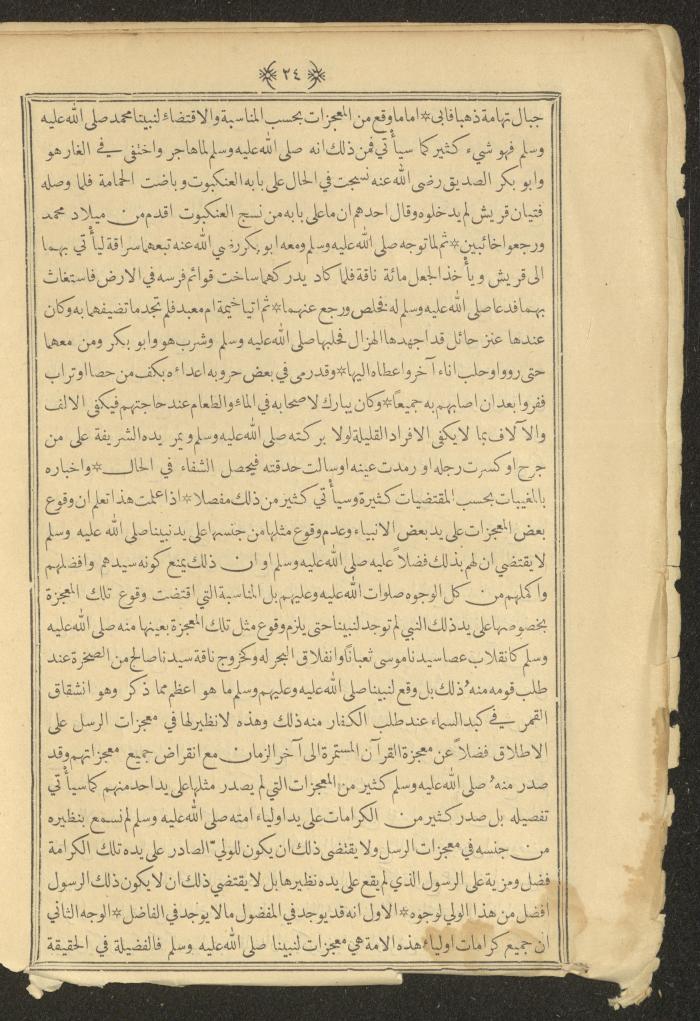 ﴿ ٢٤ ﴾
جبال تهامة ذهبا فابى * اما ما وقع من المعجزات بحسب المناسبة والاقتضاء لنبينا محمد صلى الله عليه
وسلم فهو شيء كثير كما سيأتي فمن ذلك انه صلى الله عليه وسلم لما هاجر واختفى في الغار هو
وابو بكر الصديق رضى الله عنه نسجت في الحال على بابه العنكبوت وباضت الحمامة فلما وصله
فتيان قريش لم يدخلوه وقال احدهم ان ما على بابه من نسج العنكبوت اقدم من ميلاد محمد
ورجعوا خائبين * ثم لما توجه صلى الله عليه وسلم ومعه ابو بكر رضي الله عنه تبعهما سراقة ليأتي بهما
الى قريش ويأخذ الجعل مائة ناقة فلما كاد يدركهما ساخت قوائم فرسه في الارض فاستغاث
بهما فدعا صلى الله عليه وسلم له فخلص ورجع عنهما * ثم اتيا خيمة ام معبد فلم تجد ما تضيفهما به وكان
عندها عنز حائل قد اجهدها الهزال فحلبها صلى الله عليه وسلم وشرب هو وابو بكر ومن معهما
حتى رووا وحلب اناء آخر واعطاه اليها * وقد رمى في بعض حروبه اعداءه بكف من حصا او تراب
ففروا بعد ان اصابهم به جميعاً * وكان يبارك لاصحابه في الماء والطعام عند حاجتهم فيكفى الالف
والآلاف بما لا يكفى الافراد القليلة لولا بركته صلى الله عليه وسلم ويمر يده الشريفة على من
جرح او كسرت رجله او رمدت عينه او سالت حدقته فيحصل الشفاء في الحال * واخباره
بالمغيبات بحسب المقتضيات كثيرة وسيأتي كثير من ذلك مفصلا * اذا علمت هذا تعلم ان وقوع
بعض المعجزات على يد بعض الانبياء وعدم وقوع مثلها من جنسها على يد نبينا صلى الله عليه وسلم
لا يقتضي ان لهم بذلك فضلاً عليه صلى الله عليه وسلم او ان ذلك يمنع كونه سيدهم وافضلهم
واكملهم من كل الوجوه صلوات الله عليه وعليهم بل المناسبة التي اقتضت وقوع تلك المعجزة
بخصوصها على يد ذلك النبي لم توجد لنبينا حتى يلزم وقوع مثل تلك المعجزة بعينها منه صلى الله عليه
وسلم كانقلاب عصا سيدنا موسى ثعباناً وانفلاق البحر له وكخروج ناقة سيدنا صالح من الصخرة عند
طلب قومه منه ذلك بل وقع لنبينا صلى الله عليه وعليهم وسلم ما هو اعظم مما ذكر وهو انشقاق
القمر في كبد السماء عند طلب الكفار منه ذلك وهذه لا نظير لها في معجزات الرسل على
الاطلاق فضلاً عن معجزة القرآن المستمرة الى آخر الزمان مع انقراض جميع معجزاتهم وقد
صدر منه صلى الله عليه وسلم كثير من المعجزات التي لم يصدر مثلها على يد احد منهم كما سيأتي
تفصيله بل صدر كثير من الكرامات على يد اولياء امته صلى الله عليه وسلم لم نسمع بنظيره
من جنسه في معجزات الرسل ولا يقتضى ذلك ان يكون للولي الصادر على يده تلك الكرامة
فضل ومزية على الرسول الذي لم يقع على يده نظيرها بل لا يقتضي ذلك ان لا يكون ذلك الرسول
افضل من هذا الولي لوجوه * الاول انه قد يوجد في المفضول ما لا يوجد في الفاضل * الوجه الثاني
ان جميع كرامات اولياء هذه الامة هي معجزات لنبينا صلى الله عليه وسلم فالفضيلة في الحقيقة